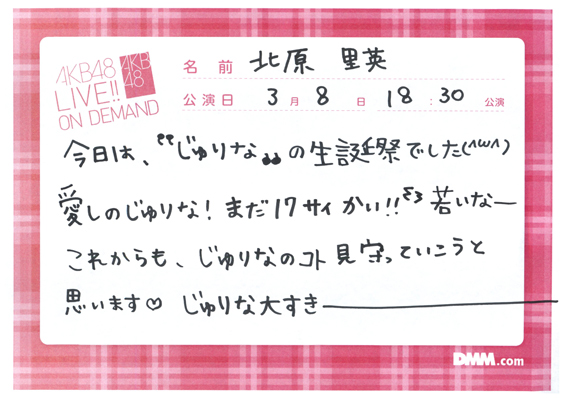 AKB48
LIVE!!
ON DEMAND
AKB
48
名前 北原 里英
公演日 3月8日 18:30 公演
今日は、"じゅりな"の生誕祭でした(^ω^)
愛しのじゅりな！まだ17サイかい!! 若いなー
これからも、じゅりなのコト見守っていこうと
思います♡ じゅりな大すきー
DMM.com